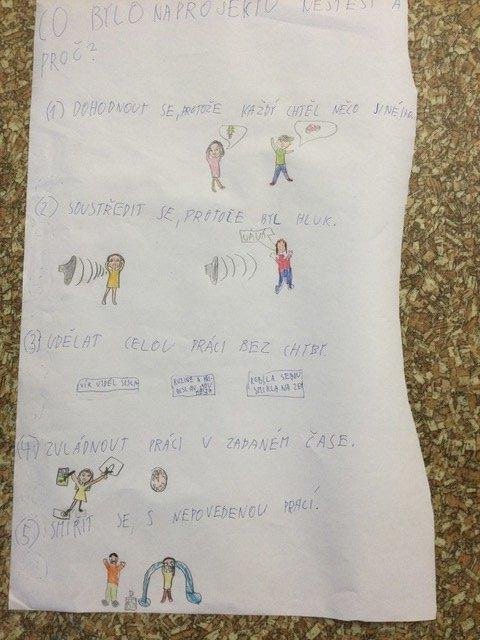 CO BYLO NA PROJEKTU NEJTĚŽŠÍ A
PROČ?
(1) DOHODNOUT SE, PROTOŽE KAŽDÝ CHTĚL NĚCO JINÉHO.
(2) SOUSTŘEDIT SE, PROTOŽE BYL HLUK.
(3) UDĚLAT CELOU PRÁCI BEZ CHYB.
(4) ZVLÁDNOUT PRÁCI V ZADANÉM ČASE.
(5) SMÍŘIT SE, S NEPOVEDENOU PRACÍ.